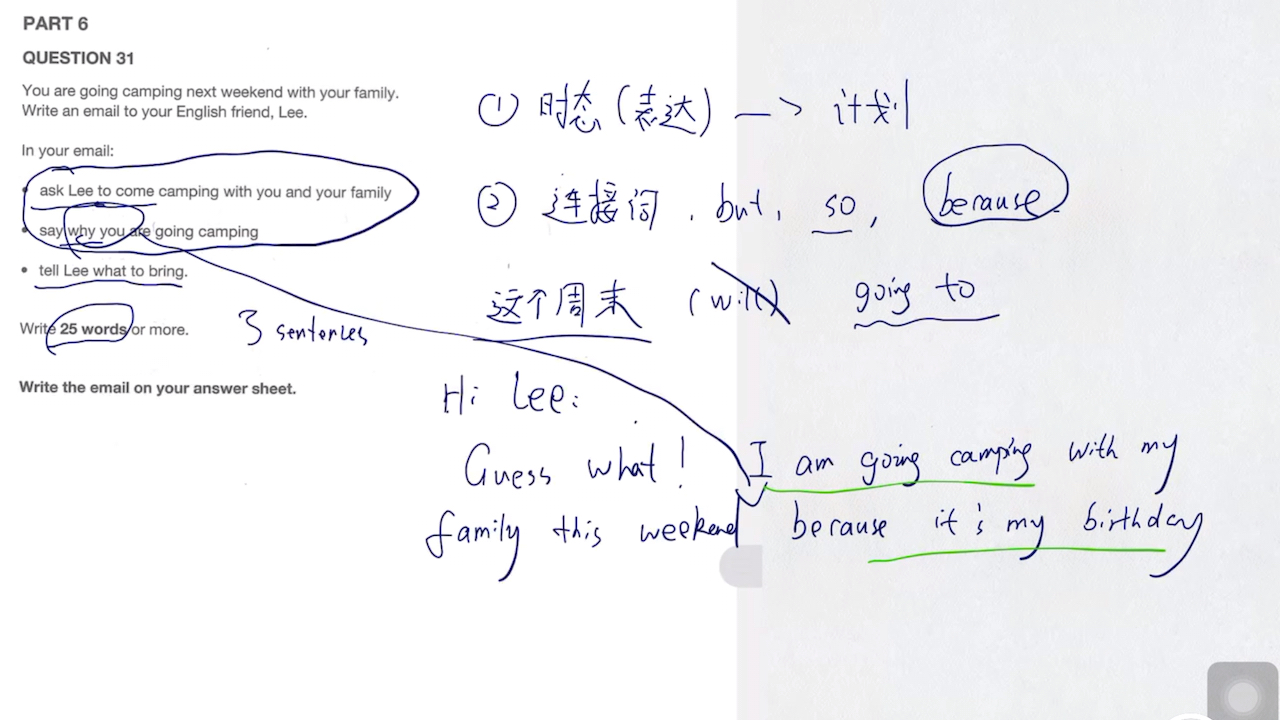 PART 6
QUESTION 31
You are going camping next weekend with your family.
Write an email to your English friend, Lee.
In your email:
• ask Lee to come camping with you and your family
• say why you are going camping
• tell Lee what to bring.
Write 25 words or more.
3 sentences
Write the email on your answer sheet.
① 时态(表达) —> 计划
② 连接词, but, so, because
这个周末 (will) going to
Hi Lee:
Guess what! I am going camping with my
family this weekend because it's my birthday